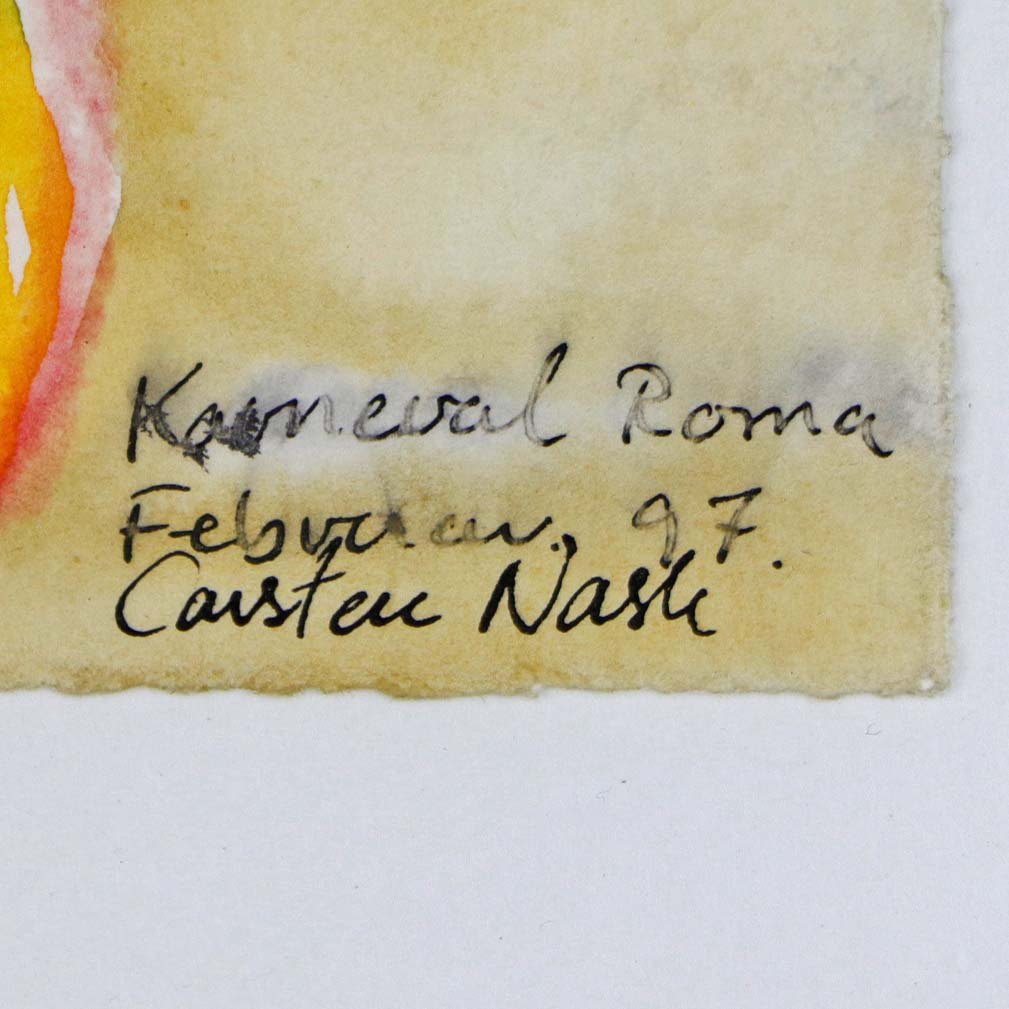 Karneval Roma
Februar, 97.
Carsten Nash